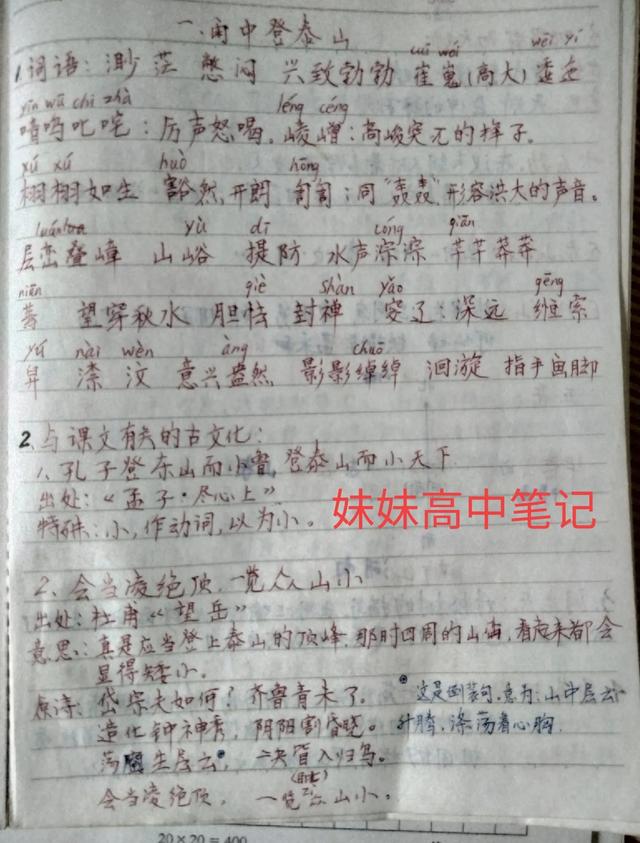 一、雨中登泰山
cuī wéi wēi yí
1.词语：渺茫 憋闷 兴致勃勃 崔嵬(高大) 逶迤
yīn wū chì zhà léng céng
喑呜叱咤：厉声怒喝。崚嶒：高峻突兀的样子。
xǔ xǔ huò hōng
栩栩如生 豁然开朗 訇訇：同“轰轰”形容洪大的声音。
yù dī cóng qiān
层峦叠嶂 山峪 提防 水声淙淙 芊芊莽莽
niān qiè shàn yǎo gēng
蔫 望穿秋水 胆怯 封禅 窔辽：深远 絙索
yú nài wèn àng chuò
舁 渿 汶 意兴盎然 影影绰绰 洄漩 指手画脚
2.与课文有关的古文化：
1、孔子登东山而小鲁，登泰山而小天下
出处：《孟子·尽心上》
特殊：小，作动词，以为小。
妹妹高中笔记
2、会当凌绝顶，一览众山小
出处：杜甫《望岳》
意思：真是应当登上泰山的顶峰，那时四周的山峦，看起来都会
显得矮小。
原诗：岱宗夫如何？齐鲁青未了。
这是倒装句，意为：山中层云
造化钟神秀，阴阳割昏晓。
升腾，涤荡着心胸
荡胸生层云，决眥入归鸟。
会当凌绝顶，一览众山小。
20×20=400